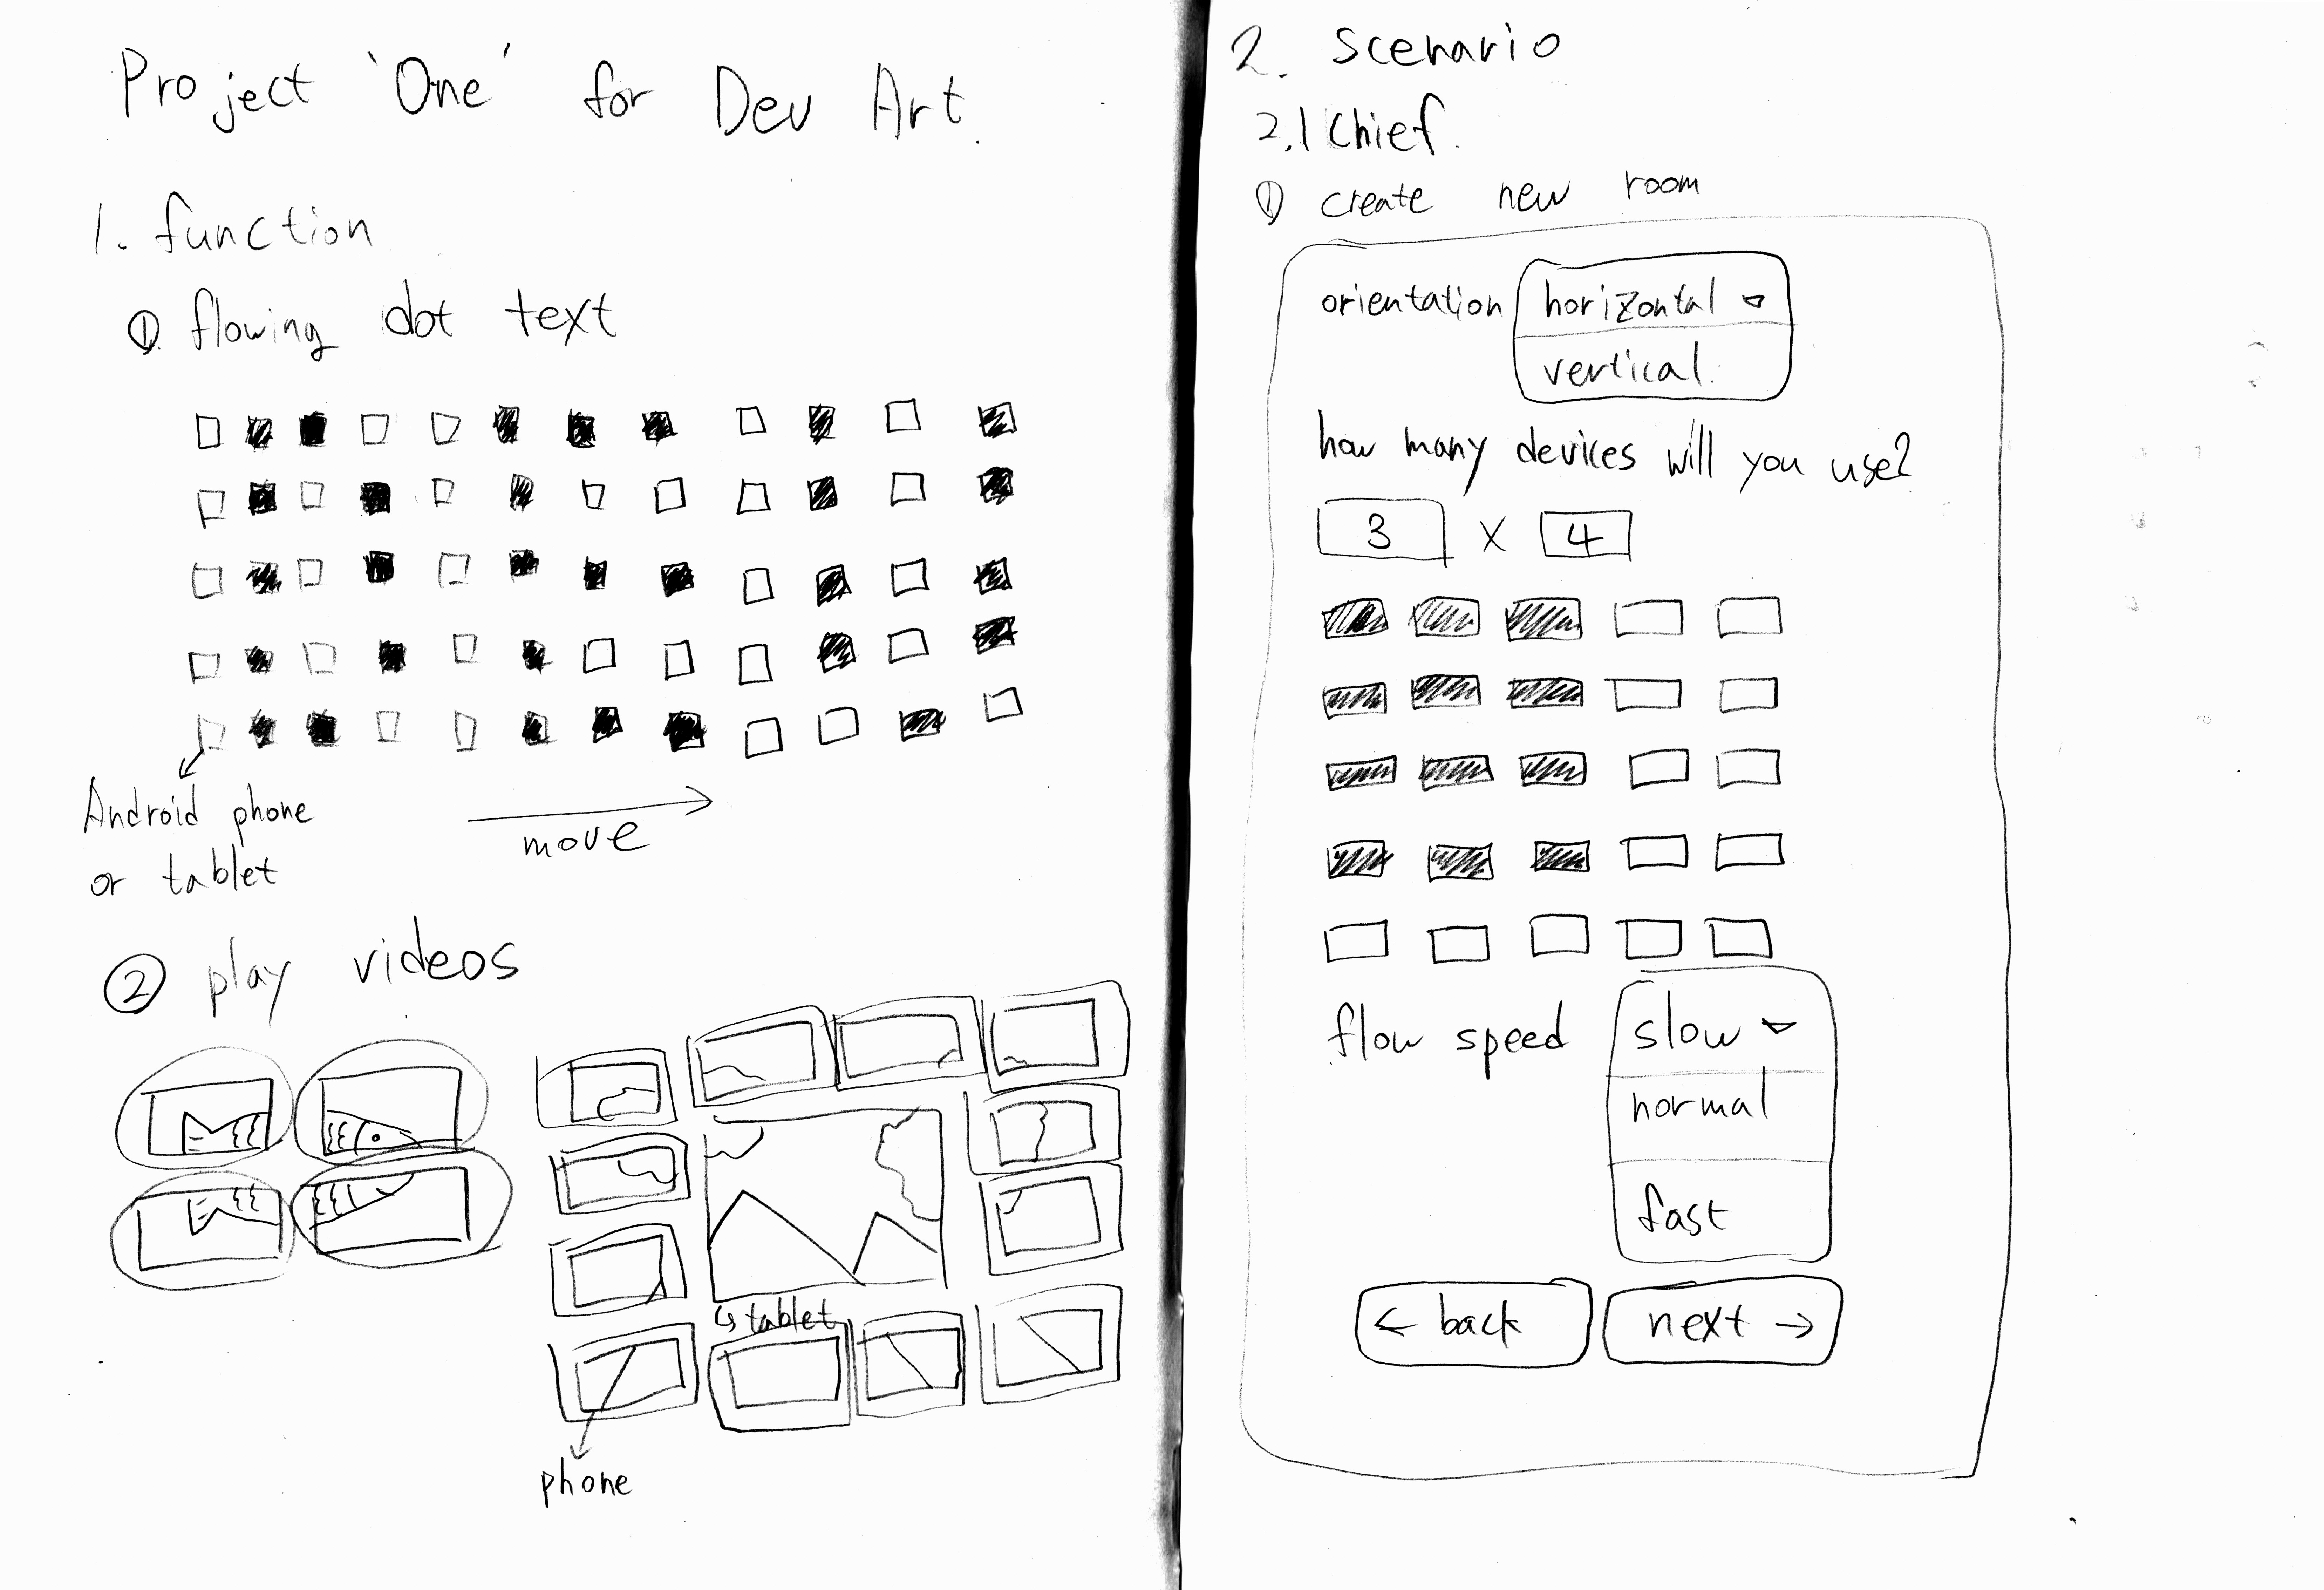 Project 'One' for Dev Art.
1. function
① flowing dot text
Android phone
or tablet
move
② play videos
↳ tablet
phone
2. Scenario
2.1 Chief.
① create new room
orientation horizontal
vertical.
how many devices will you use?
3 X 4
flow speed slow
normal
fast
← back next →